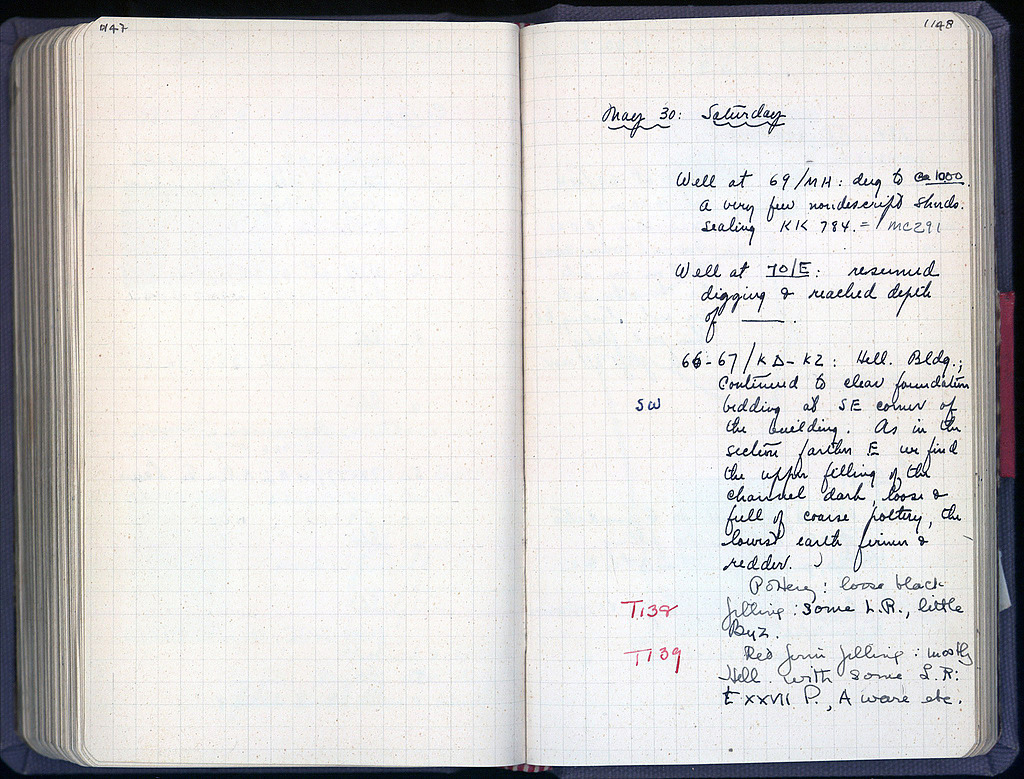 1147
1148
May 30: Saturday
Well at 69/MH: dug to ca 1000.
a very few nondescript sherds.
sealing KK 784. = MC291
Well at 70/E: resumed
digging & reached depth
of ——.
66-67/KΔ-KZ: Hell. Bldg.;
Continued to clear foundation
SW bedding at SE corner of
the building. As in the
section farther E we find
the upper filling of the
channel dark, loose &
full of coarse pottery, the
lowest earth firmer &
redder.
Pottery: loose black
T138 filling: some L.R., little
Byz.
T139 Red firm filling: mostly
Hell. with some L.R:
E XXVII P., A ware etc.